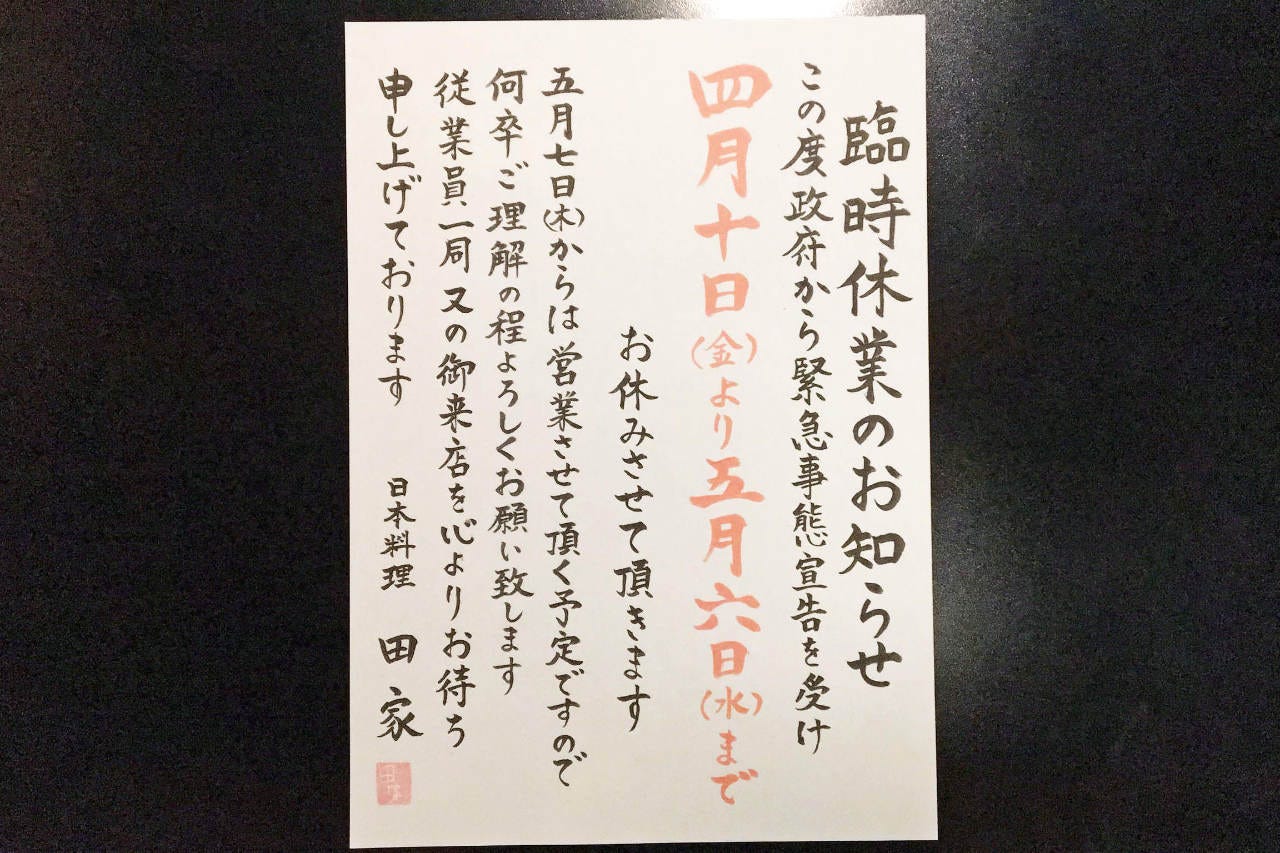 臨時休業のお知らせ
この度政府から緊急事態宣告を受け
四月十日(金)より五月六日(水)まで
お休みさせて頂きます
五月七日(木)からは営業させて頂く予定ですので
何卒ご理解の程よろしくお願い致します
従業員一同又の御来店を心よりお待ち
申し上げております
日本料理 田家